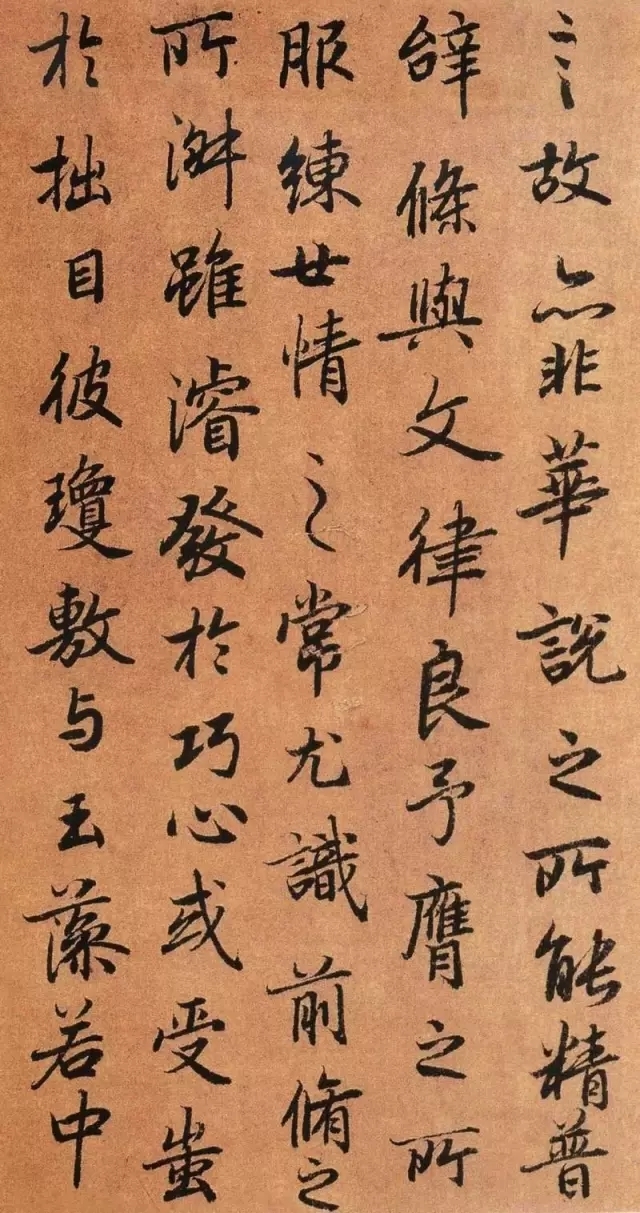 之故亦非華說之所能精普
辝條與文律良予膺之所
服練世情之常尤識前脩之
所淑雖濬發於巧心或受蚩
於拙目彼瓊敷与玉藻若中